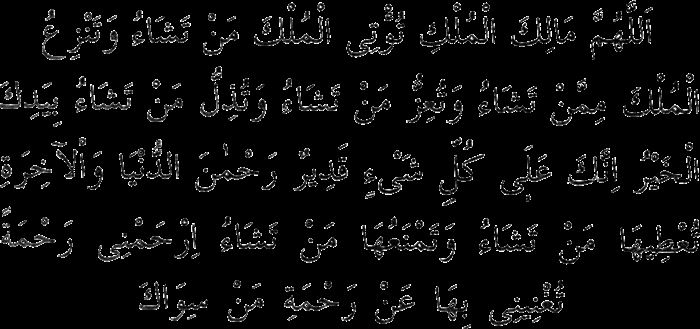 اَللّٰهُمَّ مَالِكَ الْمُلْكِ تُؤْتِى الْمُلْكَ مَنْ تَشَاءُ وَتَنْزِعُ
الْمُلْكَ مِمَّنْ تَشَاءُ وَتُعِزُّ مَنْ تَشَاءُ وَتُذِلُّ مَنْ تَشَاءُ بِيَدِكَ
الْخَيْرُ اِنَّكَ عَلَى كُلِّ شَىْءٍ قَدِيرٌ رَحْمٰنَ الدُّنْيَا وَالْآخِرَةِ
تُعْطِيهَا مَنْ تَشَاءُ وَتَمْنَعُهَا مَنْ تَشَاءُ اِرْحَمْنِى رَحْمَةً
تُغْنِينِى بِهَا عَنْ رَحْمَةِ مَنْ سِوَاكَ